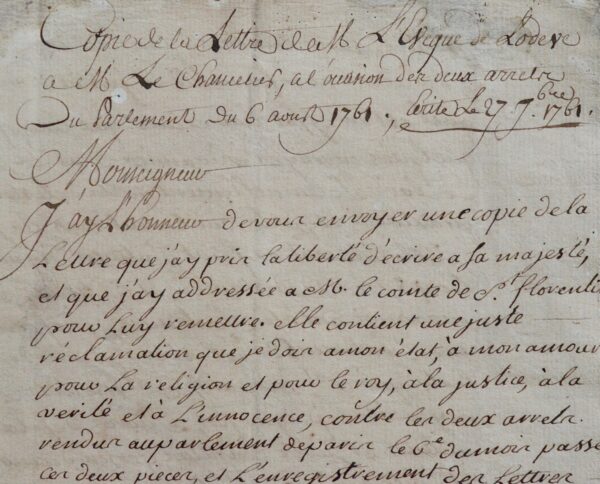 Copie de la Lettre de M L'Eveque de Lodeve
a M Le Chancelier, a l'ocasion des deux arrets
Du Parlement du 6 aoust 1761, Ecrite Le 27 7.bre 1761.
Monseigneur
J'ay L'honneur de vous envoyer une copie de la
Lettre que j'ay pris la liberté d'écrire a sa majesté,
et que j'ay addressée a M. le comte de St. florentin
pour Luy remettre. elle contient une juste
réclamation que je dois a mon état, à mon amour
pour La religion et pour le roy, à la justice, à la
verité et à L'innocence, contre les deux arrets
rendus au parlement de paris le 6e du mois passé
ces deux pieces, et L'enregistrement des Lettres